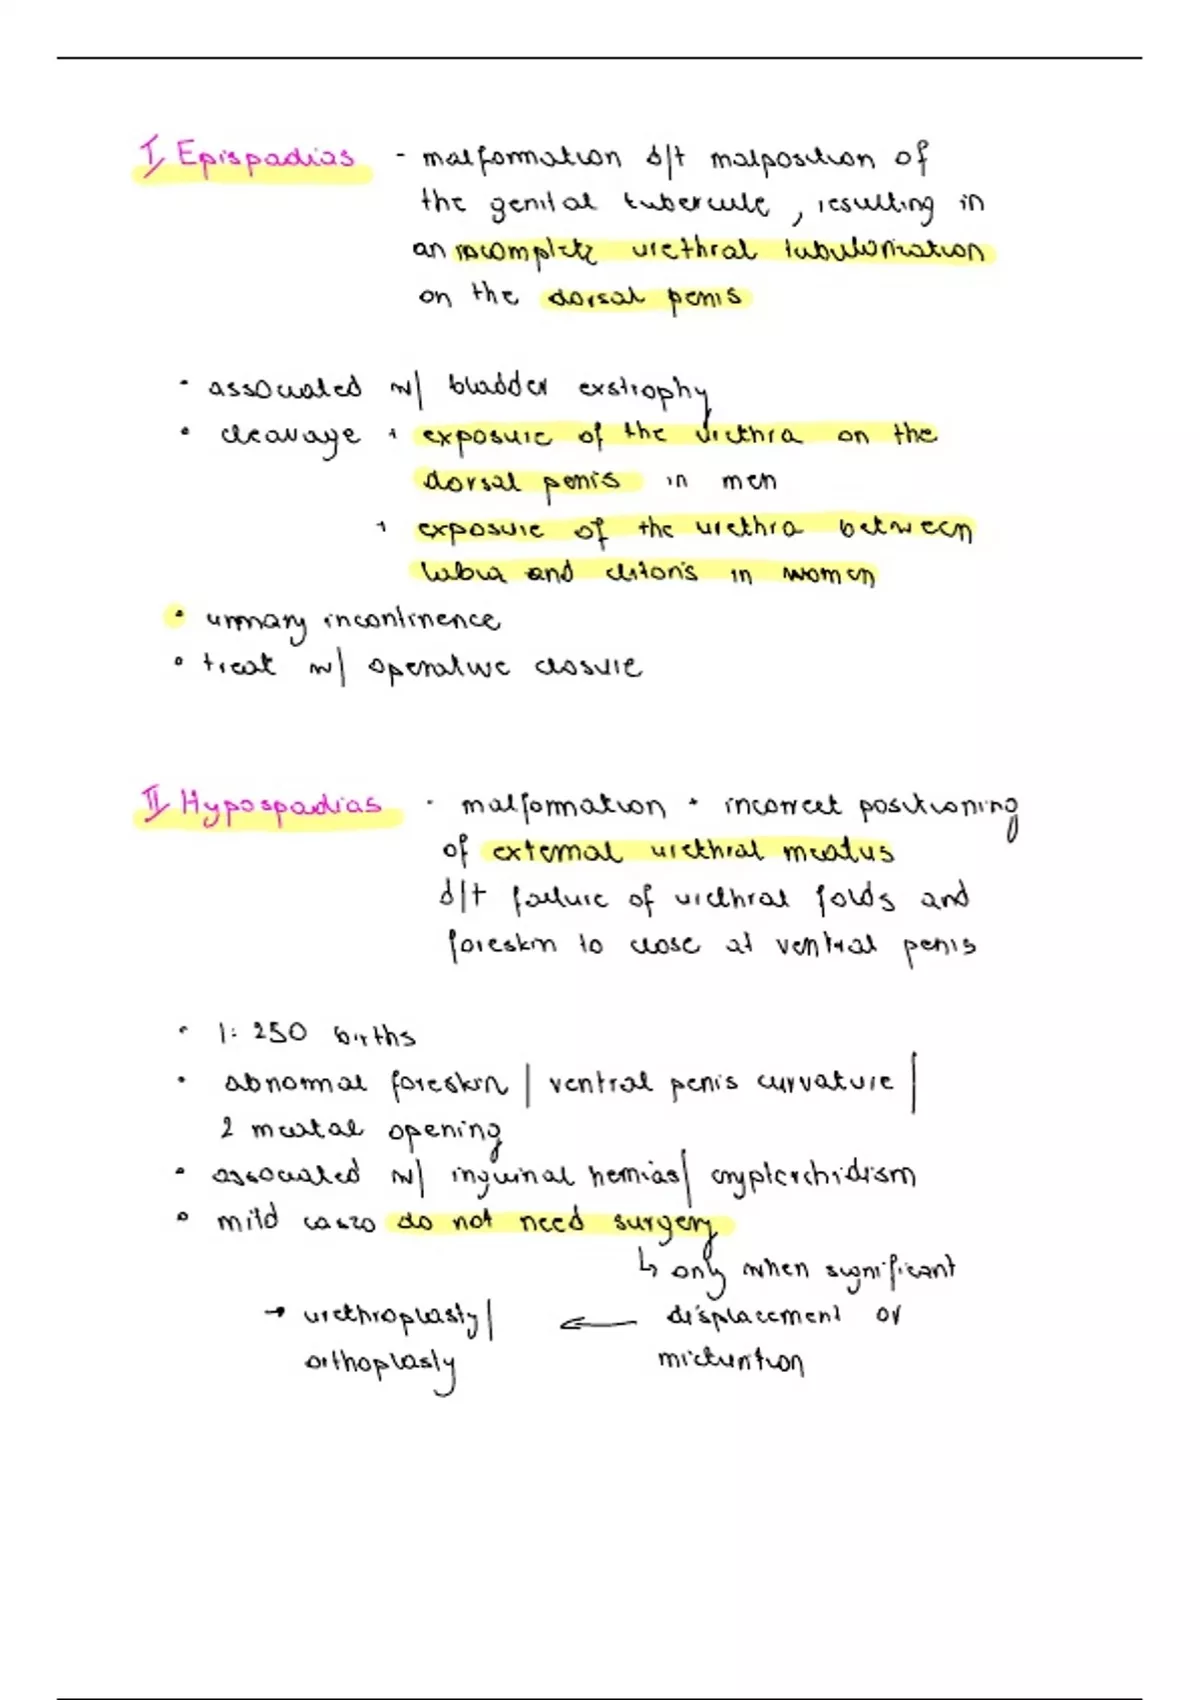 I, Epispadias - malformation d/t malposition of
the genital tubercule, resulting in
an incomplete urethral tubulorization
on the dorsal penis
• associated w/ bladder exstrophy
• cleavage + exposure of the urethra on the
dorsal penis in men
+ exposure of the urethra between
labia and clitoris in women
• urinary incontinence
• treat w/ operative closure
II, Hypospadias - malformation + incorrect positioning
of external urethral meatus
d/t failure of urethral folds and
foreskin to close at ventral penis
• 1: 250 births
• abnormal foreskin / ventral penis curvature /
2 meatal opening
• associated w/ inguinal hernias / cryptorchidism
• mild do not need surgery
↳ only when significant
→ urethroplasty / ← displacement or
orthoplasty micturition